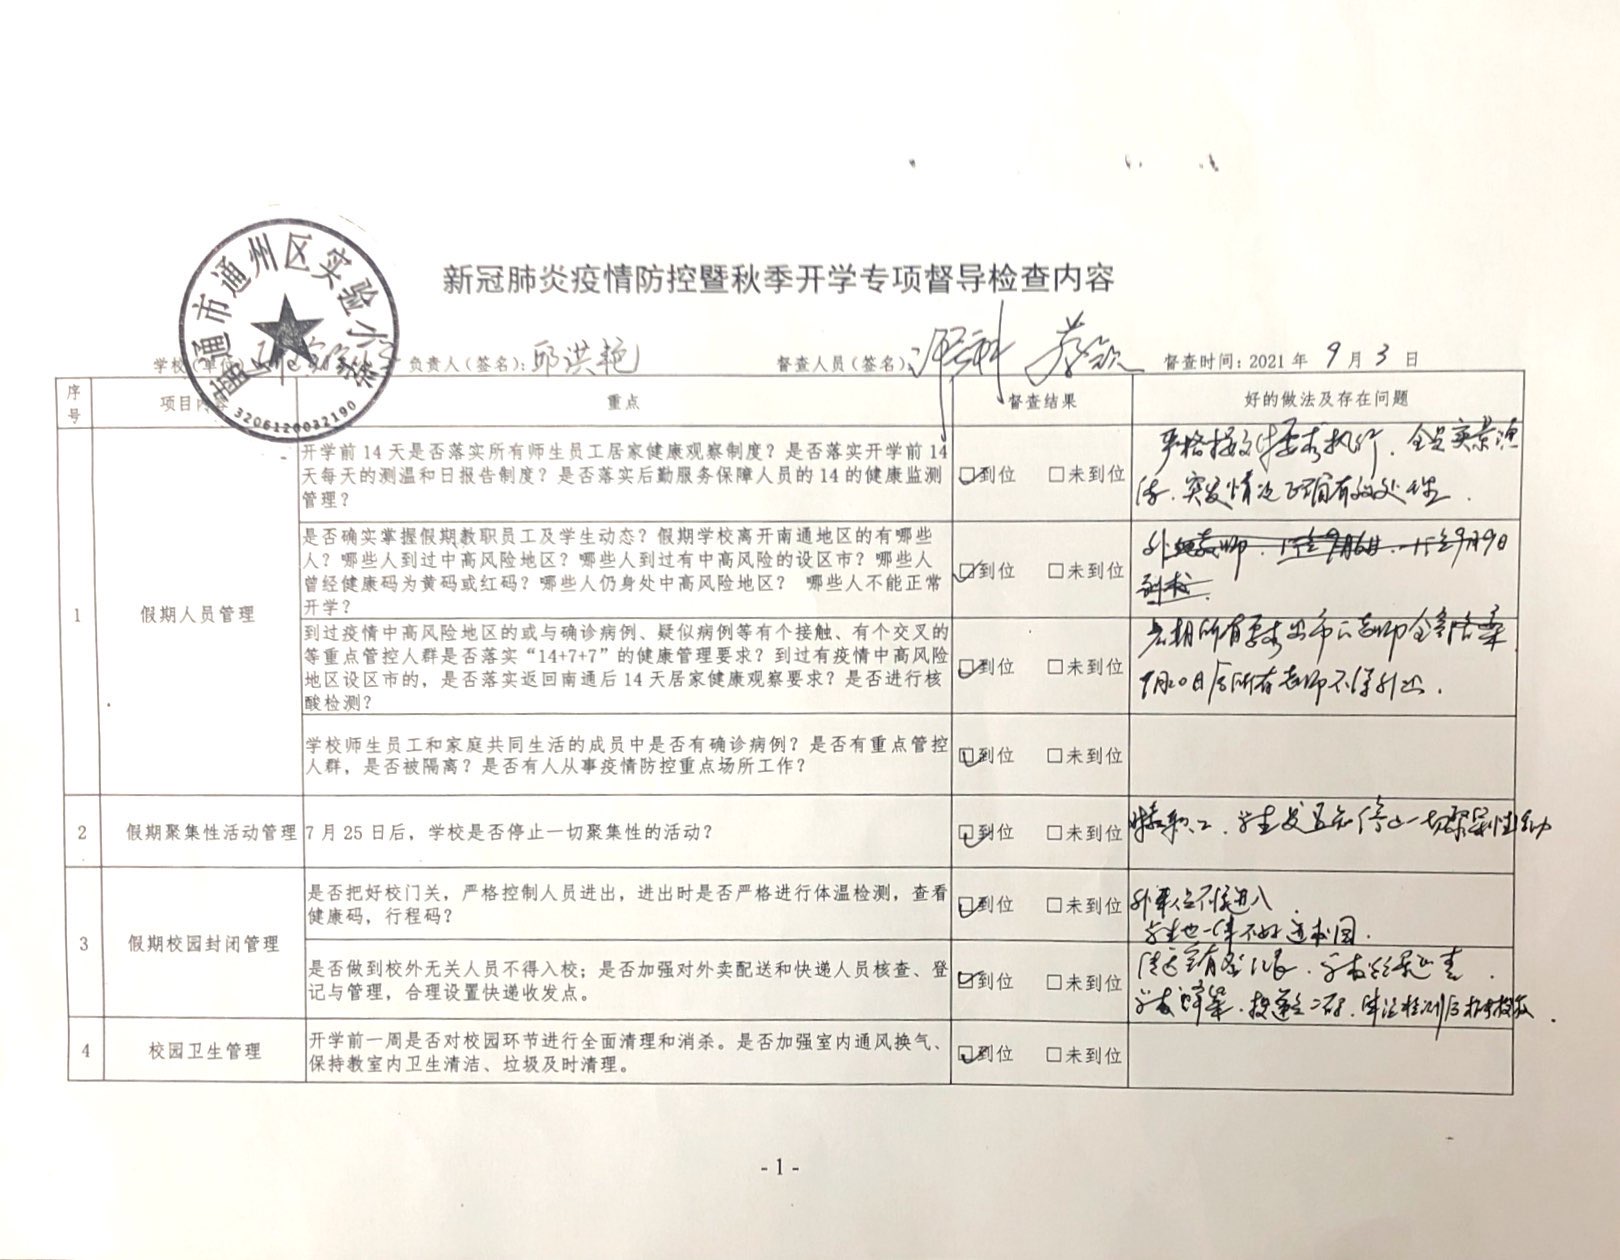 新冠肺炎疫情防控暨秋季开学专项督导检查内容
南通市通州区实验小学
3206120032190
学校(单位) 负责人(签名): 邱洪艳 督查人员(签名): 督查时间: 2021 年 9 月 3 日
序号 项目内容 重点 督查结果 好的做法及存在问题
1 假期人员管理
开学前 14 天是否落实所有师生员工居家健康观察制度? 是否落实开学前 14
天每天的测温和日报告制度? 是否落实后勤服务保障人员的 14 的健康监测
管理?
☑到位 □未到位
严格按文件要求执行. 全员实景演
练. 突发情况 有效处理.
是否确实掌握假期教职员工及学生动态? 假期学校离开南通地区的有哪些
人? 哪些人到过中高风险地区? 哪些人到过有中高风险的设区市? 哪些人
曾经健康码为黄码或红码? 哪些人仍身处中高风险地区? 哪些人不能正常
开学?
☑到位 □未到位
到过疫情中高风险地区的或与确诊病例、疑似病例等有个接触、有个交叉的
等重点管控人群是否落实“14+7+7”的健康管理要求? 到过有疫情中高风险
地区设区市的, 是否落实返回南通后 14 天居家健康观察要求? 是否进行核
酸检测?
☑到位 □未到位
所有 老师不得外出.
学校师生员工和家庭共同生活的成员中是否有确诊病例? 是否有重点管控
人群, 是否被隔离? 是否有人从事疫情防控重点场所工作?
☑到位 □未到位
2 假期聚集性活动管理 7 月 25 日后, 学校是否停止一切聚集性的活动?
☑到位 □未到位
停止一切聚集性活动
3 假期校园封闭管理
是否把好校门关, 严格控制人员进出, 进出时是否严格进行体温检测, 查看
健康码, 行程码?
☑到位 □未到位
学生也一律不好进校园.
是否做到校外无关人员不得入校; 是否加强对外卖配送和快递人员核查、登
记与管理, 合理设置快递收发点。
☑到位 □未到位
4 校园卫生管理
开学前一周是否对校园环节进行全面清理和消杀。是否加强室内通风换气、
保持教室内卫生清洁、垃圾及时清理。
☑到位 □未到位
- 1 -